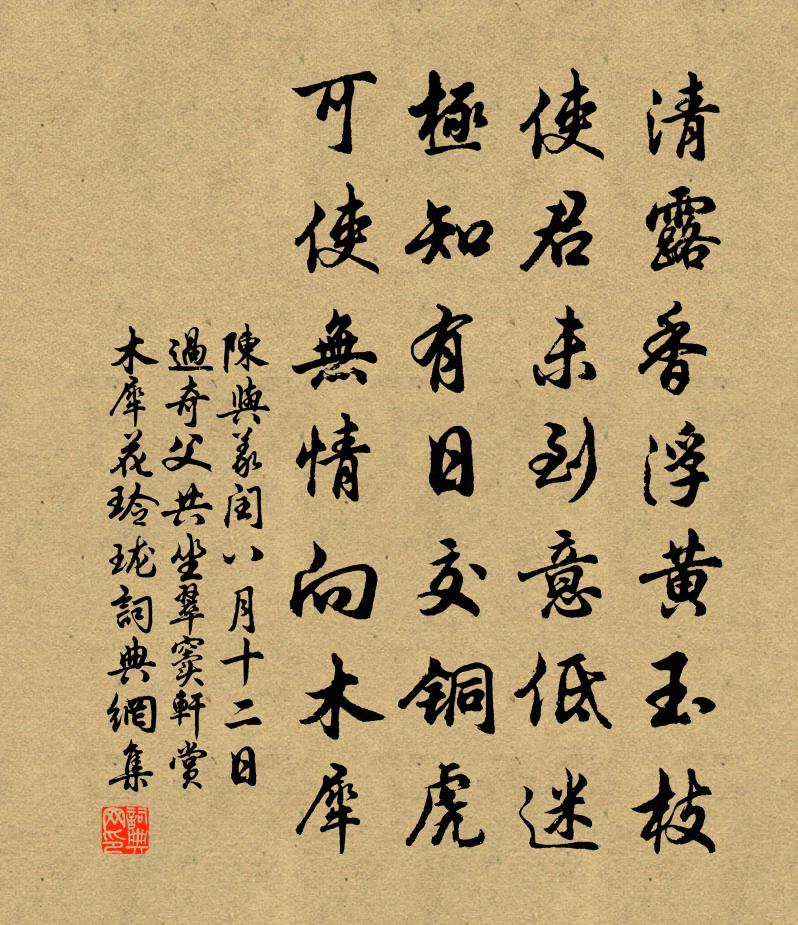 清露香浮黄玉枝
使君未到意低迷
極知有日交铜虎
可使無情向木犀
陳與義閏八月十二日
過奇父共坐翠窦軒賞
木犀花玲珑詞典網集
詞典网印